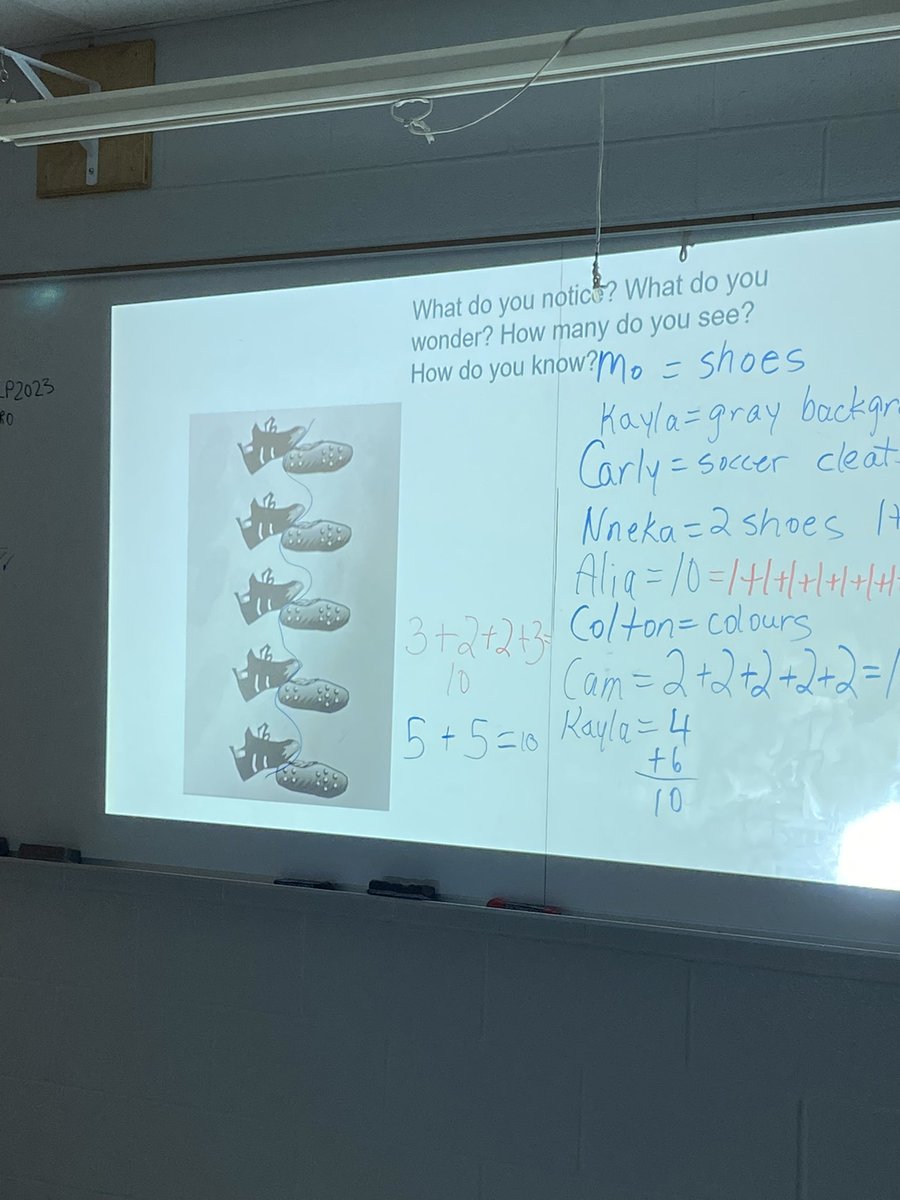 What do you notice? What do you
wonder? How many do you see?
How do you know?
Mo = shoes
Kayla = gray backgr
Carly = soccer cleat
Nneka = 2 shoes 1+
Alia = 10 = 1+1+1+1+1+1+
Colton = colours
Cam = 2+2+2+2+2=1
Kayla = 4
+6
10
3+2+2+3=
10
5+5=10
LP2023